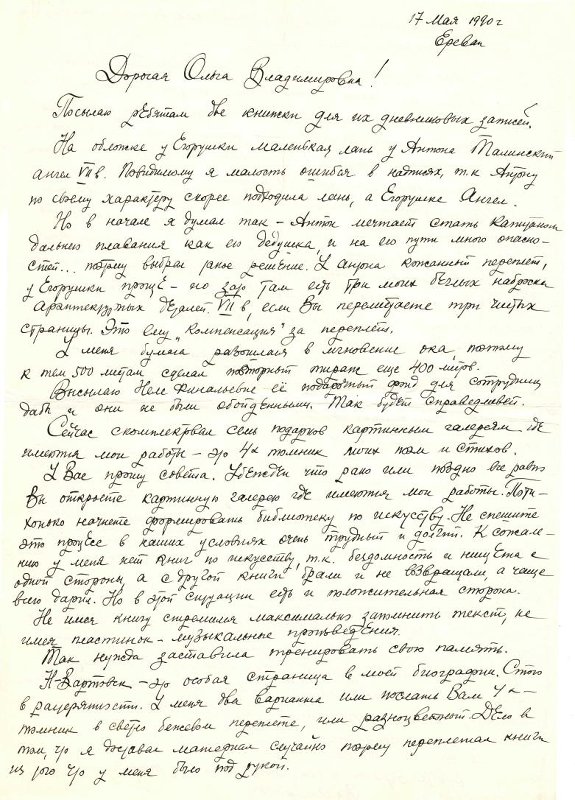 17 Мая 1990 г
Ереван
Дорогая Ольга Владимировна!
Посылаю ребятам две книжки для их дневниковых записей.
На обложке у Егорушки маленькая лань у Антона Талинский
ангел VII в. Повидимому я малость ошибся в т.к. Антону
по своему характеру скорее подходила лань, а Егорушке Ангел.
Но в начале я думал так – Антон мечтает стать капитаном
дальнего плавания как его дедушка, и на его пути много опасно-
стей... потому выбрал такое решение. У Антона кожаный переплет,
у Егорушки проще – но зато там есть три моих беглых наброска
архитектурных деталей VII в, если Вы перелистаете три чистых
страницы. Это ему „Компенсация" за переплет.
У меня бумага разошлась в мгновение ока, поэтому
к тем 500 метам сделал повторный тираж еще 400
Высылаю Неле её подарочный фонд для сотрудниц
дабы и они не были обойденными. Так будет справедливей.
Сейчас скомплектовал семь подарков картинным галереям где
имеются мои работы – это 4х томник моих поэм и стихов.
У Вас прошу совета. Убежден что рано или поздно все равно
Вы откроете картинную галерею где имеются мои работы. Поти-
хоньку начнете формировать библиотеку по искусству. Не спешите
это процесс в наших условиях очень трудный и долгий. К сожале-
нию у меня нет книг по искусству, т.к. бездомность и нищета с
одной стороны, а с другой книги брали и не возвращали, а чаще
всего дарил. Но в этой ситуации есть и положительная сторона.
Не имея книгу стремился максимально запомнить текст, не
имея пластинок – музыкальные произведения.
Так нужда заставила тренировать свою память.
Н-Вартовск – это особая страница в моей биографии. Стою
в растерянности. У меня два варианта или послать Вам 4х-
томник в светло бежевом переплете, или разноцветный. Дело в
том, что я доставал материал случайно потому переплетал книги
из того что у меня было под рукой.